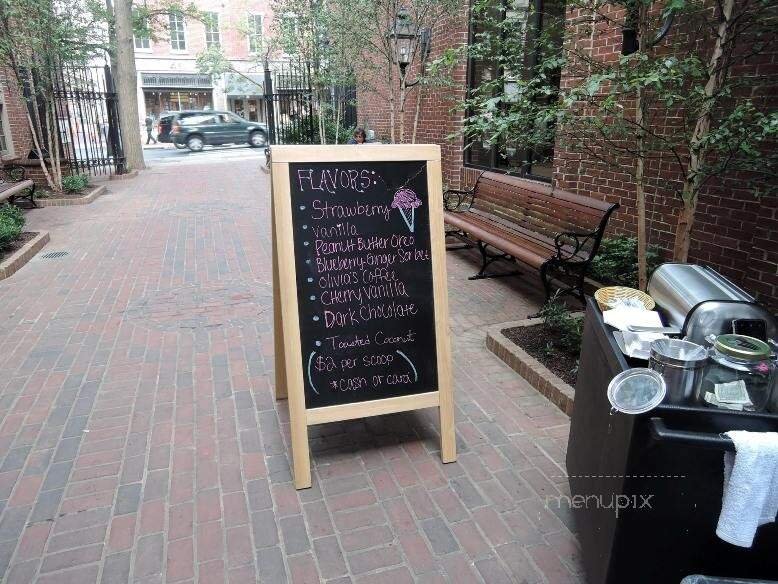 FLAVORS:
Strawberry
Vanilla
Peanut Butter Oreo
Blueberry-Ginger Sorbet
Olivia's Coffee
Cherry Vanilla
Dark Chocolate
Toasted Coconut
($2 per scoop
*cash or card)
menupix